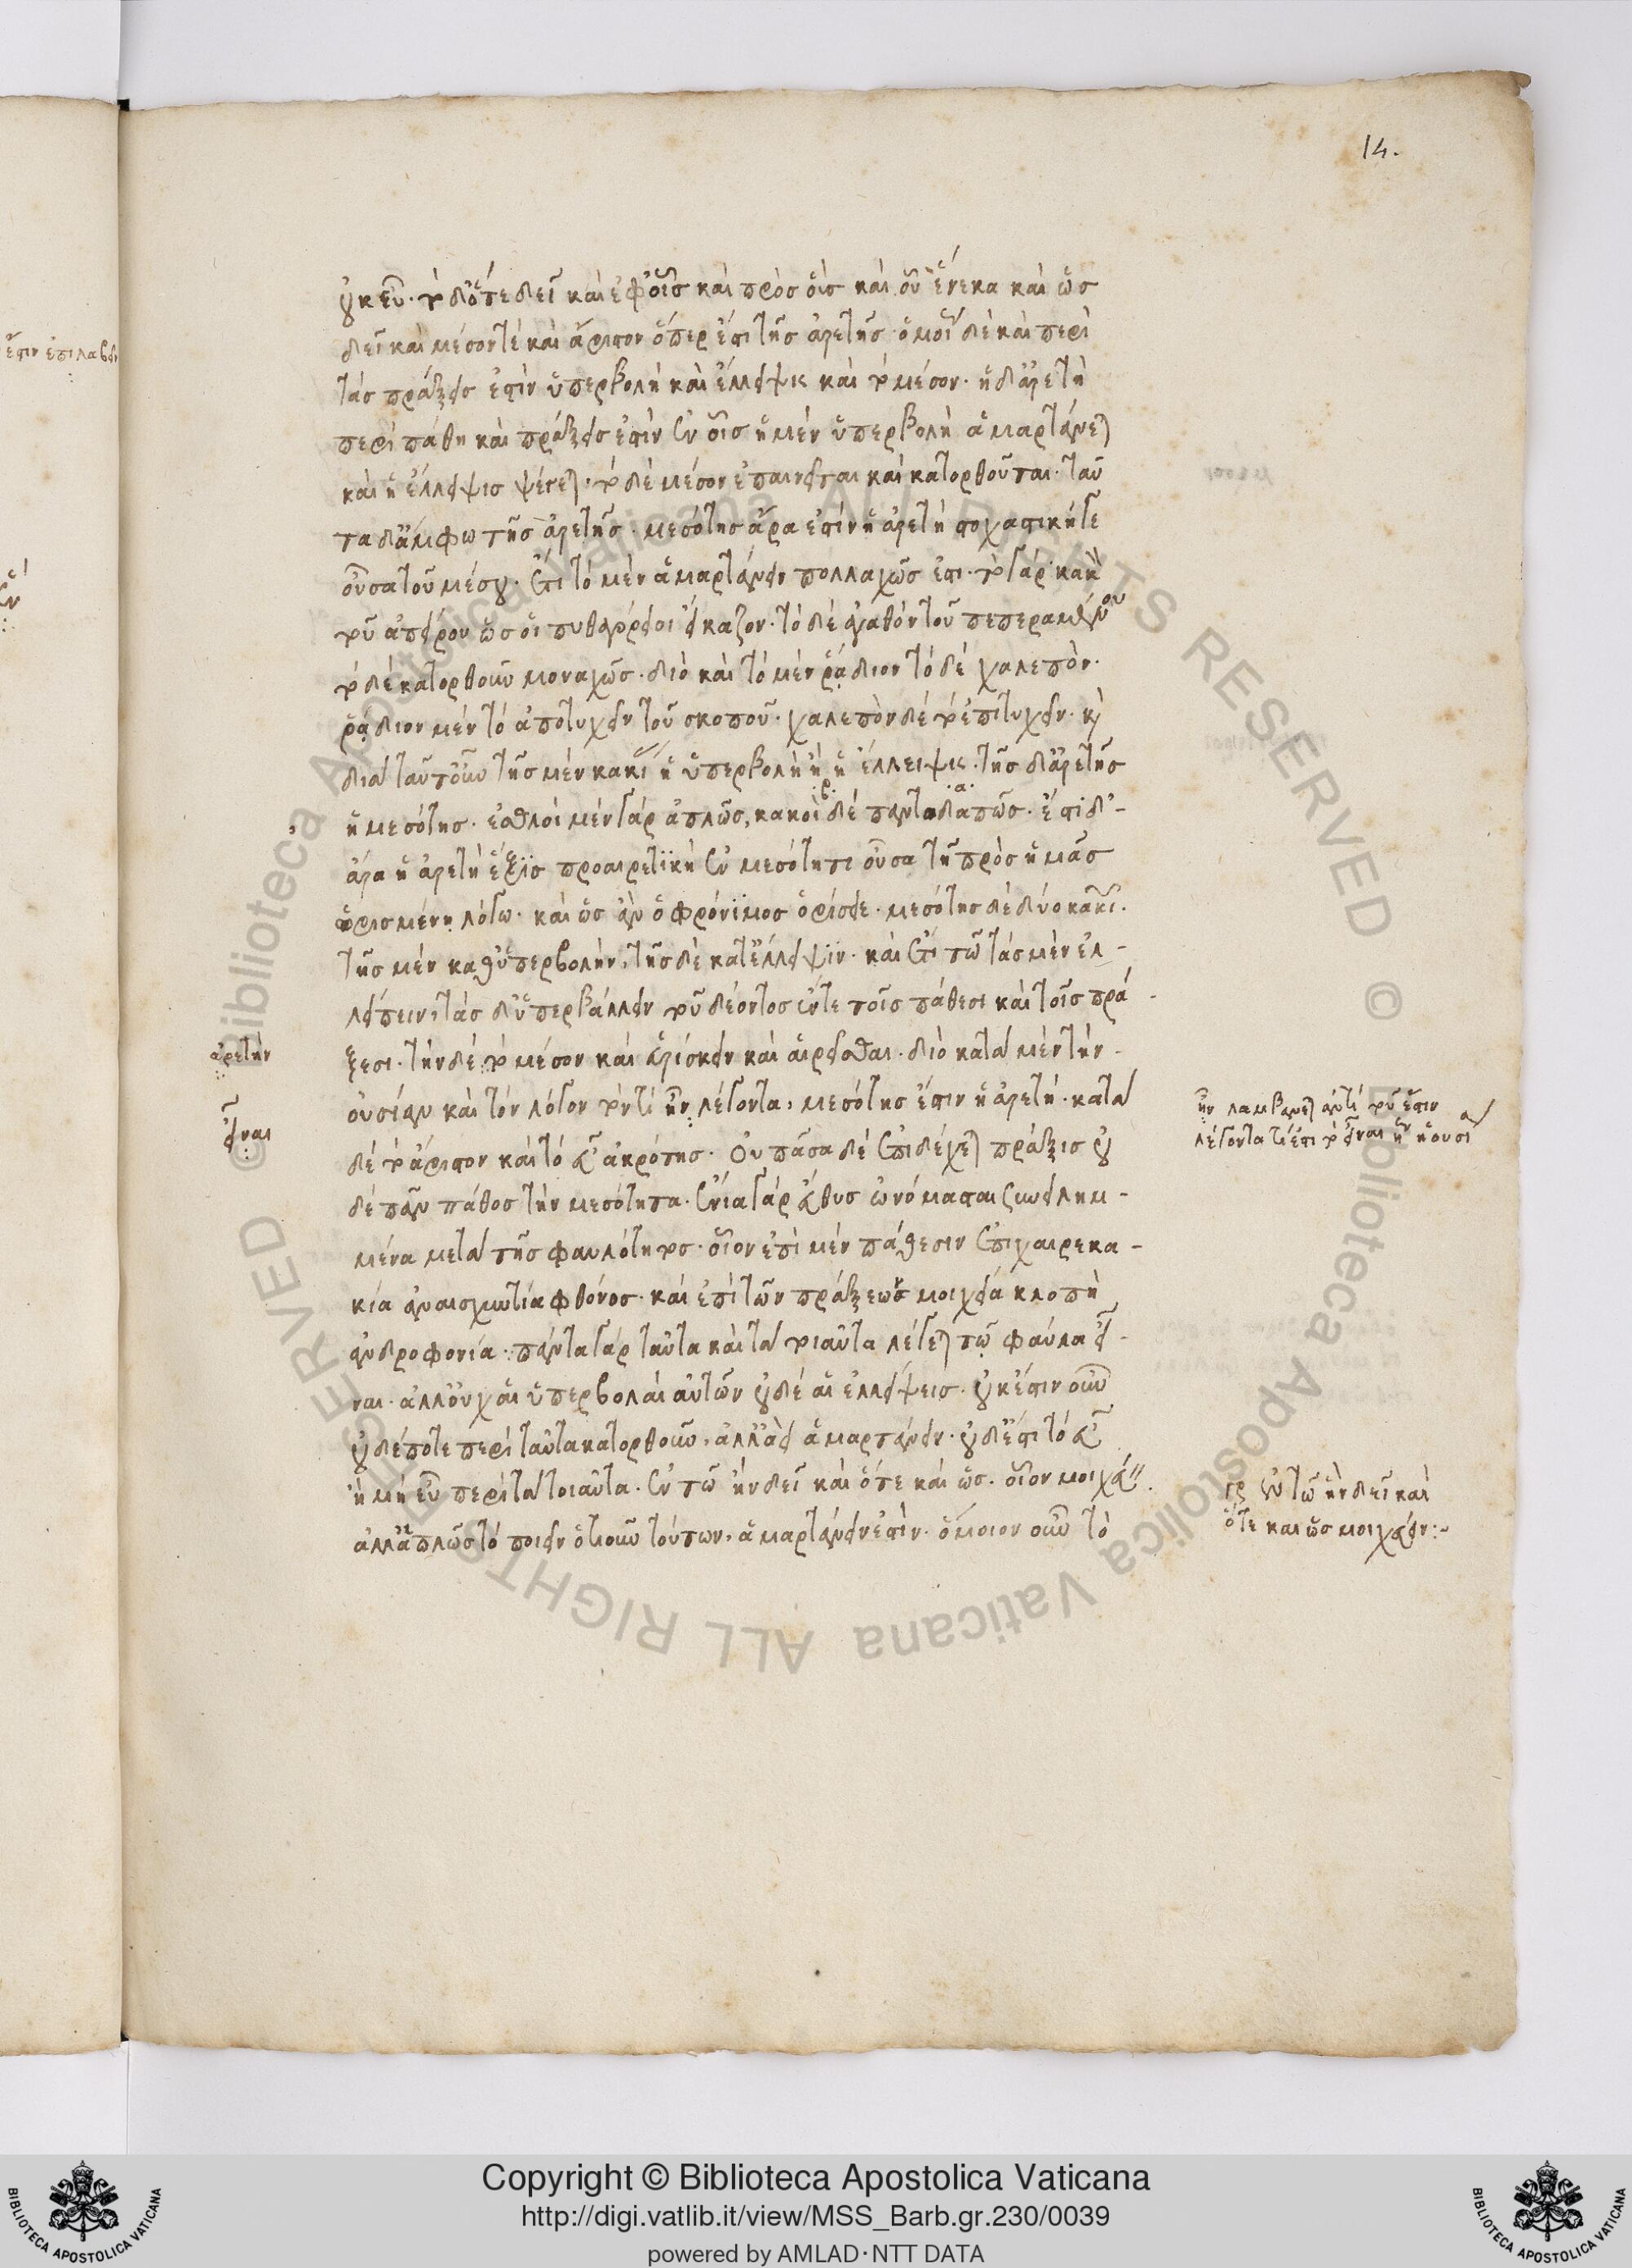 14.
οὐκ εὖ· τὸ δ' ὅτε δεῖ καὶ ἐφ' οἷς καὶ πρὸς οὓς καὶ οὗ ἕνεκα καὶ ὡς
δεῖ καὶ μέσον τὲ καὶ ἄριστον ὅπερ ἐστὶ τῆς ἀρετῆς· ὁμοί δὲ καὶ περὶ
τὰς πράξεις ἐστὶν ὑπερβολὴ καὶ ἔλλειψις καὶ τὸ μέσον· ἡ δ' ἀρετὴ
περὶ πάθη καὶ πράξεις ἐστὶν ἐν οἷς ἡ μὲν ὑπερβολὴ ἁμαρτάνεται
καὶ ἡ ἔλλειψις ψέγεται· τὸ δὲ μέσον ἐπαινεῖται καὶ κατορθοῦται· ταῦ
τα δ' ἄμφω τῆς ἀρετῆς· μεσότης ἄρα ἐστὶν ἡ ἀρετὴ στοχαστική γε
οὖσα τοῦ μέσου· ἔτι τὸ μὲν ἁμαρτάνειν πολλαχῶς ἐστι· τὸ γὰρ κακὸν
τοῦ ἀπείρου ὡς οἱ πυθαγόρειοι εἴκαζον· τὸ δὲ ἀγαθὸν τοῦ πεπερασμένου
τὸ δὲ κατορθοῦν μοναχῶς· διὸ καὶ τὸ μὲν ῥᾴδιον τὸ δὲ χαλεπόν·
ῥᾴδιον μὲν τὸ ἀποτυχεῖν τοῦ σκοποῦ· χαλεπὸν δὲ τὸ ἐπιτυχεῖν· καὶ
διὰ ταῦτ' οὖν τῆς μὲν κακί ἡ ὑπερβολὴ ἡ ἔλλειψις· τῆς δ' ἀρετῆς
ἡ μεσότης· ἐσθλοὶ μὲν γὰρ ἁπλῶς, κακοὶ δὲ παντοδαπῶς· ἔστι δ'
ἄρα ἡ ἀρετὴ ἕξις προαιρετικὴ ἐν μεσότητι οὖσα τῇ πρὸς ἡμᾶς
ὡρισμένη λόγω· καὶ ὡς ἂν ὁ φρόνιμος ὁρίσειε· μεσότης δὲ δύο κακι.
τῆς μὲν καθ' ὑπερβολήν, τῆς δὲ κατ' ἔλλειψιν· καὶ ἔτι τῶ τὰς μὲν ἐλ-
λείπειν, τὰς δ' ὑπερβάλλειν τοῦ δέοντος ἔν τε τοῖς πάθεσι καὶ τοῖς πρά-
ξεσι· τὴν δὲ τὸ μέσον καὶ εὑρίσκειν καὶ αἱρεῖσθαι· διὸ κατὰ μὲν τὴν
ἀρετὴν
οὐσίαν καὶ τὸν λόγον τὸν τί ἦν λέγοντα, μεσότης ἐστὶν ἡ ἀρετή· κατὰ
εἶναι
ἦν λαμβάνεται ἀντὶ τοῦ ἔστιν
λέγοντα τί ἐστι τὸ εἶναι ἢν ἡ οὐσία
δὲ τὸ ἄριστον καὶ τὸ εὖ ἀκρότης· Οὐ πᾶσα δὲ ἐπιδέχεται πρᾶξις οὐ
δὲ πᾶν πάθος τὴν μεσότητα· ἔνια γὰρ εὐθὺς ὠνόμασται συνειλημ-
μένα μετὰ τῆς φαυλότητος· οἷον ἐπὶ μὲν πάθεσιν ἐπιχαιρεκα-
κία ἀναισχυντία φθόνος· καὶ ἐπὶ τῶν πράξεων μοιχεία κλοπὴ
ἀνδροφονία· πάντα γὰρ ταῦτα καὶ τὰ τοιαῦτα λέγεται τῷ φαῦλα εἶ-
ναι· ἀλλ' οὐχ αἱ ὑπερβολαὶ αὐτῶν οὐδὲ αἱ ἐλλείψεις· οὐκ ἔστιν οὖν
οὐδέποτε περὶ ταῦτα κατορθοῦν, ἀλλ' ἀεὶ ἁμαρτάνειν· οὐδ' ἔστι τὸ εὖ
ἢ μὴ εὖ περὶ τὰ τοιαῦτα· ἐν τῶ ἣν δεῖ καὶ ὅτε καὶ ὡς· οἷον μοιχεύ.
γρ ἐν τῶ ἣν δεῖ καὶ
ὅτε καὶ ὡς μοιχεύειν:~
ἀλλ' ἁπλῶς τὸ ποιεῖν ὁτιοῦν τούτων, ἁμαρτάνειν ἐστίν· ὅμοιον οὖν τὸ
Copyright © Biblioteca Apostolica Vaticana
http://digi.vatlib.it/view/MSS_Barb.gr.230/0039
powered by AMLAD·NTT DATA